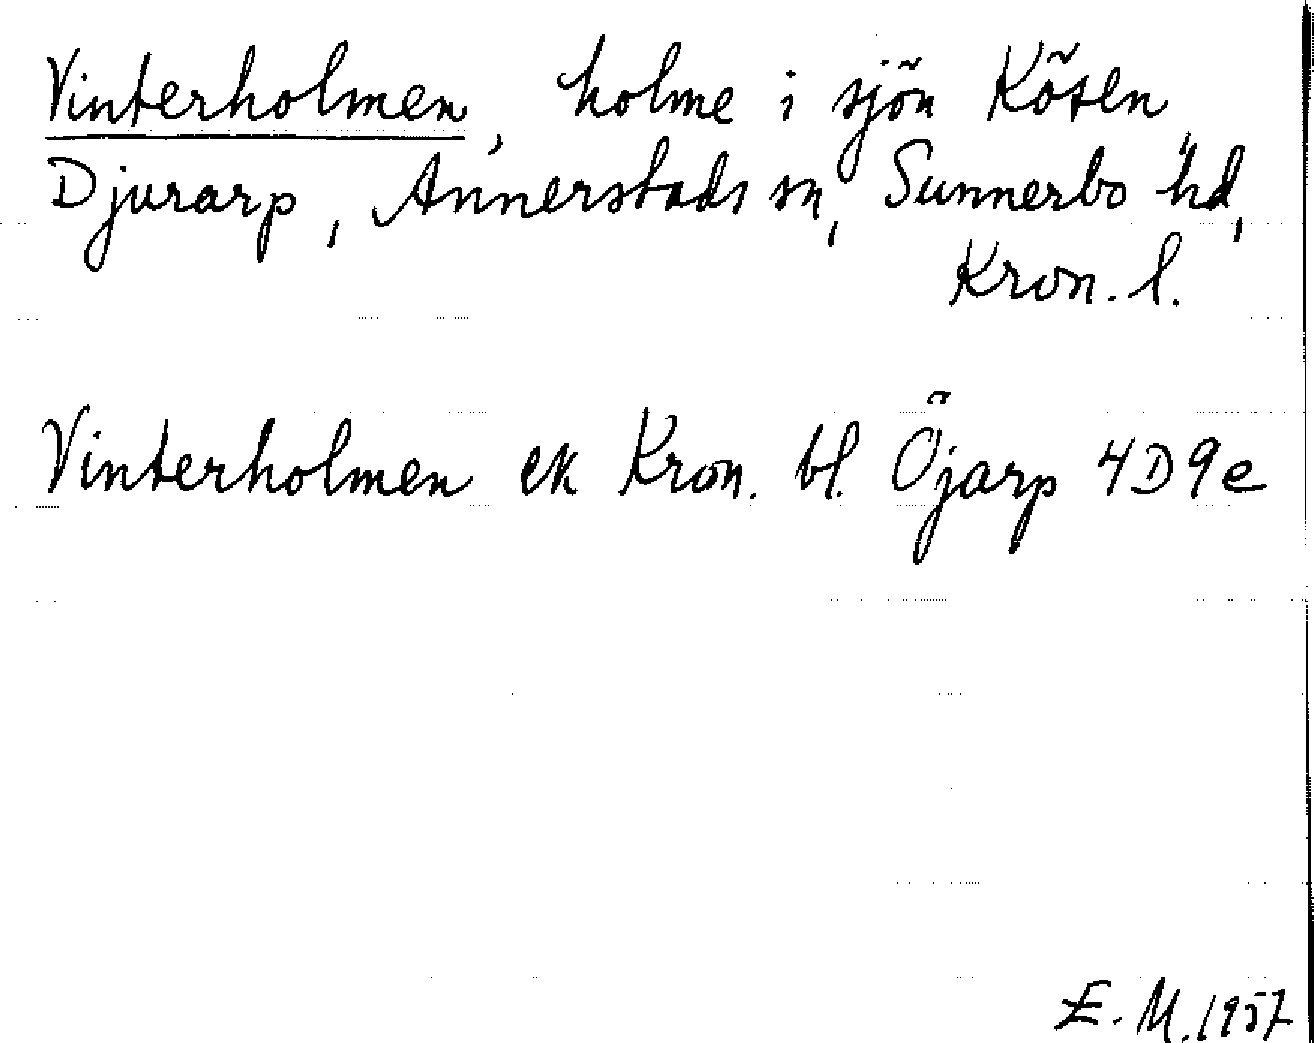 Vinterholmen, holme i sjön Kösen,
Djurarp, Annerstads sn, Sunnerbo hd,
Kron. l.
Vinterholmen ek Kron. bl. Öjarp 4D9e
E. M. 1957